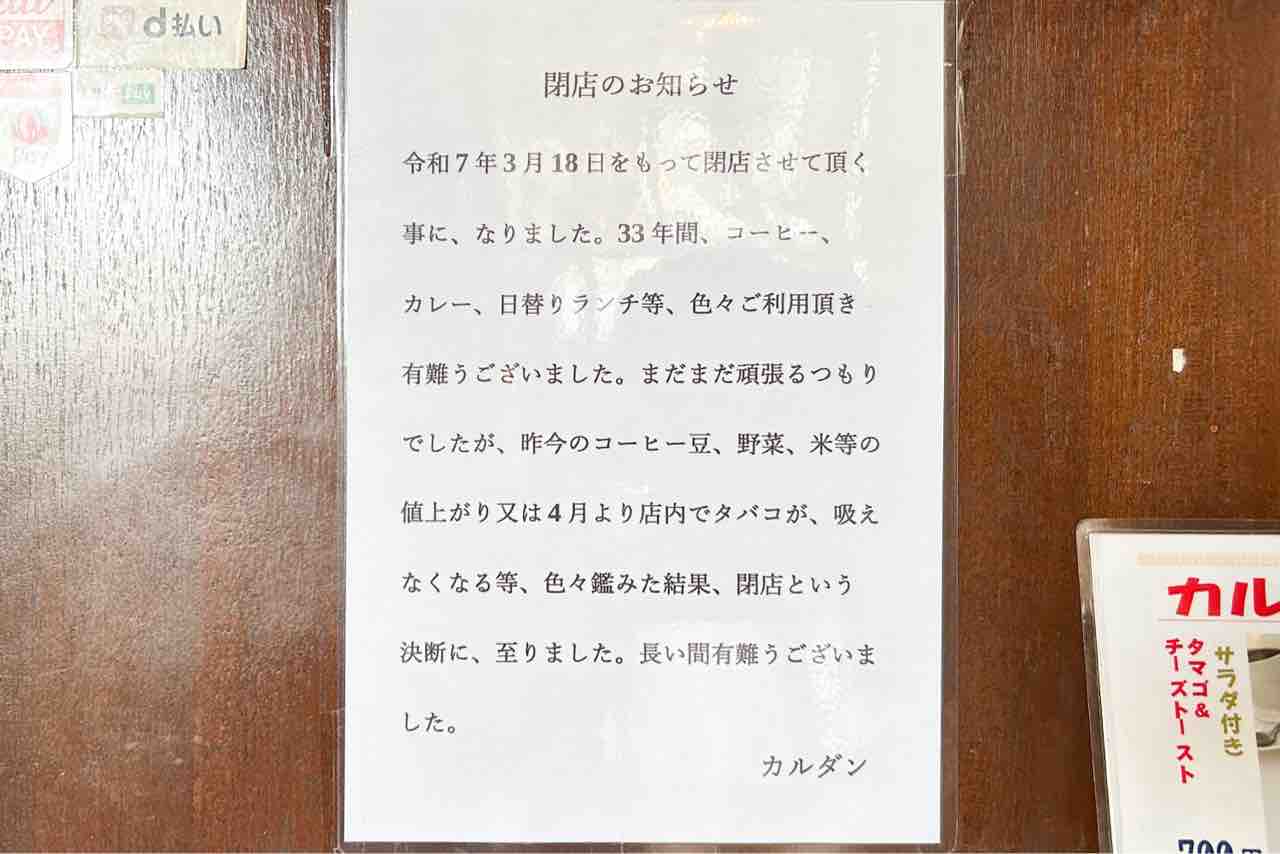 PAY
d払い
Pay
閉店のお知らせ
令和7年3月18日をもって閉店させて頂く
事に、なりました。33年間、コーヒー、
カレー、日替りランチ等、色々ご利用頂き
有難うございました。まだまだ頑張るつもり
でしたが、昨今のコーヒー豆、野菜、米等の
値上がり又は4月より店内でタバコが、吸え
なくなる等、色々鑑みた結果、閉店という
決断に、至りました。長い間有難うございま
した。
カルダン
カル
サラダ付き
タマゴ&
チーズトースト
700円